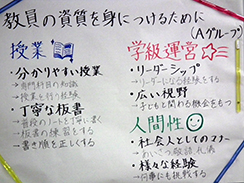 教員の資質を身につけるために
(Aグループ)
授業
・分かりやすい授業
→専門科目の知識
→授業を行う経験
・丁寧な板書
→普段のノートを丁寧に書く
→板書の練習をする
→書き順を正しくする
学級運営☆
・リーダーシップ
→リーダーになる経験をする
・広い視野
→子どもと関わる機会をもつ
人間性
・社会人としてのマナー
→あいさつ、敬語、礼儀
・様々な経験
→何事にも挑戦する